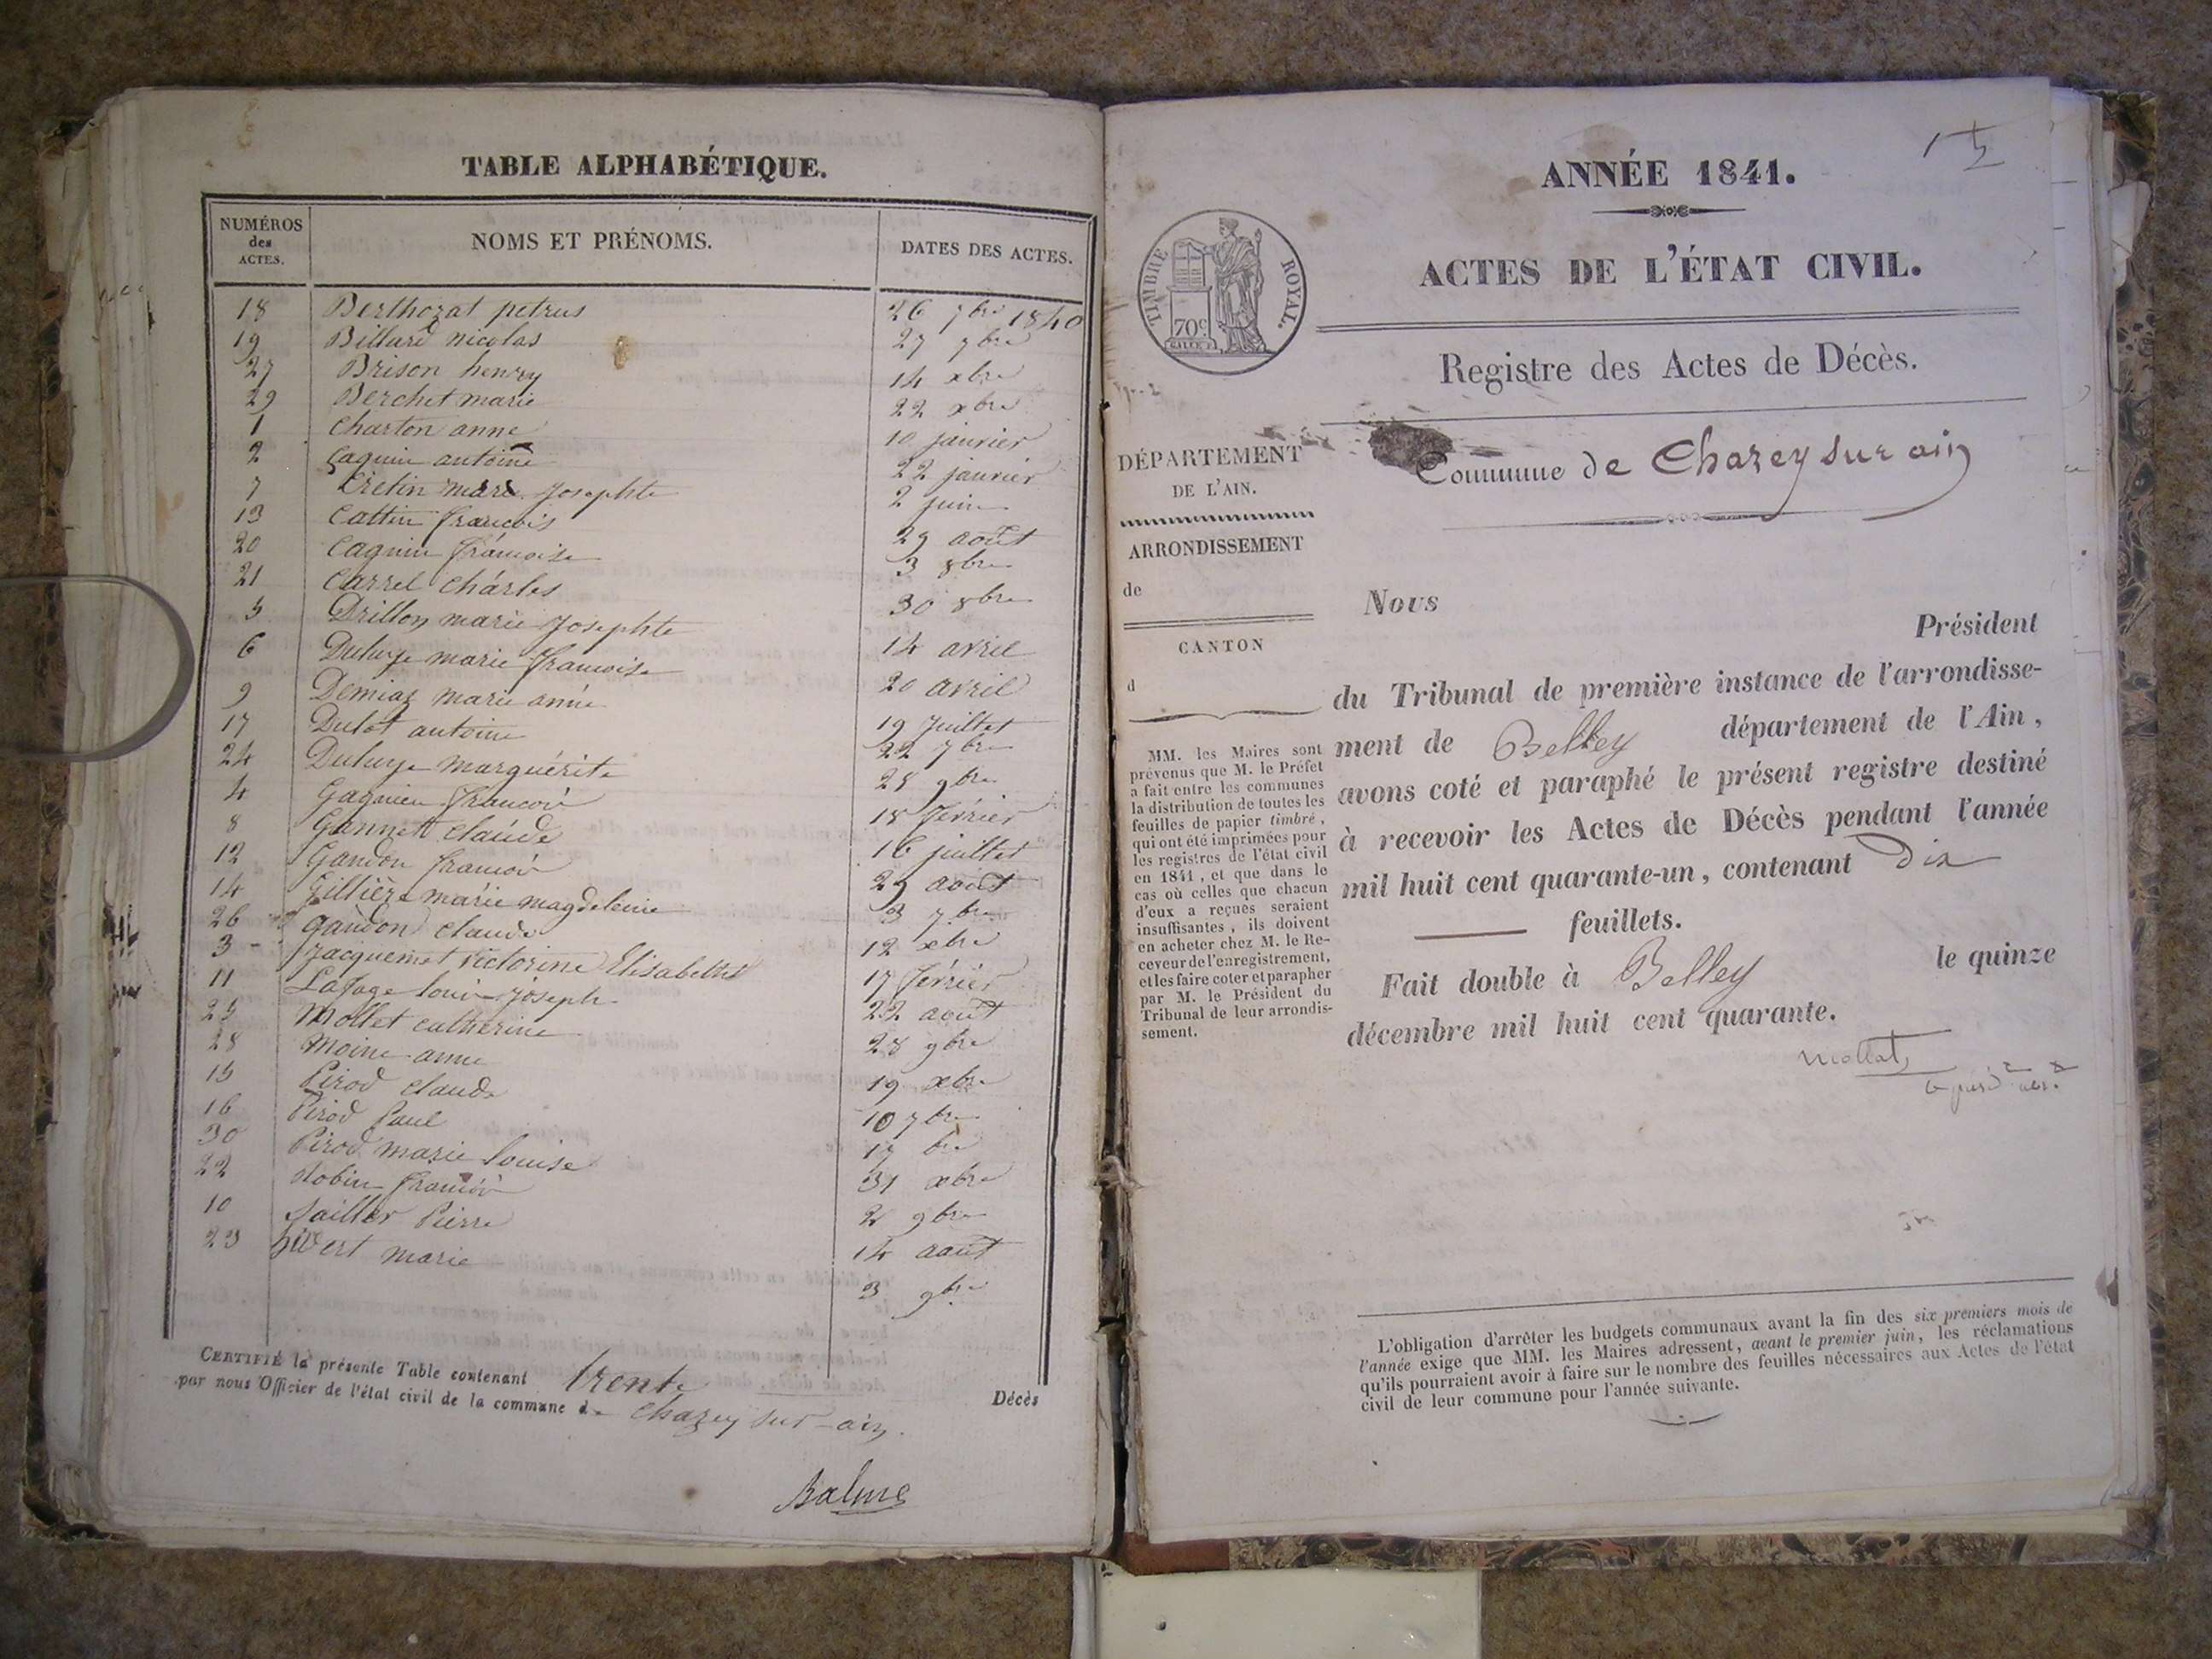 TABLE ALPHABÉTIQUE.
NUMÉROS des ACTES. NOMS ET PRÉNOMS. DATES DES ACTES.
18 Berthozat petrus 26 7bre 1840
19 Billard nicolas 27 7bre
27 Brison henry 14 xbre
29 Berchet marie 22 xbre
1 Charton anne 10 janvier
2 Cagnin antoine 22 janvier
7 Cretin marie Josephte 2 juin
13 Cattin françois 29 août
20 Cagnin françoise 3 8bre
21 Carrel Charles 30 8bre
5 Drillon marie Josephte 14 avril
6 marie françoise 20 avril
9 Demiaz marie anne 19 Juillet
17 Dulot antoine 22 7bre
24 marguérite 28 9bre
4 Gagnieu françois 18 février
8 Gannett Claude 16 juillet
12 Gandon françois 29 août
14 Zillière marie magdeleine 3 7bre
26 gandon Claude 12 xbre
3 Jacquemet victorine Elisabeth 17 février
11 Lafage louis Joseph 22 août
25 Mollet catherine 28 9bre
28 Moine anne 19 xbre
15 Pirod Claude 10 7bre
16 Pirod Paul 17 bre
30 Pirod marie louise 31 xbre
22 Robin françois 2 9bre
10 Sailler Pierre 14 août
23 marie 3 9bre
CERTIFIÉ la présente Table contenant trente Décès
par nous Officier de l'état civil de la commune de Chazey sur-ain.
Balme
ANNÉE 1841.
TIMBRE ROYAL.
70c
ACTES DE L'ÉTAT CIVIL.
Registre des Actes de Décès.
Commune de Chazey sur ain
DÉPARTEMENT
DE L'AIN.
ARRONDISSEMENT
de
CANTON
d
MM. les Maires sont
prévenus que M. le Préfet
a fait entre les communes
la distribution de toutes les
feuilles de papier timbré,
qui ont été imprimées pour
les registres de l'état civil
en 1841, et que dans le
cas où celles que chacun
d'eux a reçues seraient
insuffisantes, ils doivent
en acheter chez M. le Re-
ceveur de l'enregistrement,
et les faire coter et parapher
par M. le Président du
Tribunal de leur arrondis-
sement.
Nous
Président
du Tribunal de première instance de l'arrondisse-
ment de Belley département de l'Ain,
avons coté et paraphé le présent registre destiné
à recevoir les Actes de Décès pendant l'année
mil huit cent quarante-un, contenant dix
feuillets.
Fait double à Belley le quinze
décembre mil huit cent quarante.
Mollet
L'obligation d'arrêter les budgets communaux avant la fin des six premiers mois de
l'année exige que MM. les Maires adressent, avant le premier juin, les réclamations
qu'ils pourraient avoir à faire sur le nombre des feuilles nécessaires aux Actes de l'état
civil de leur commune pour l'année suivante.